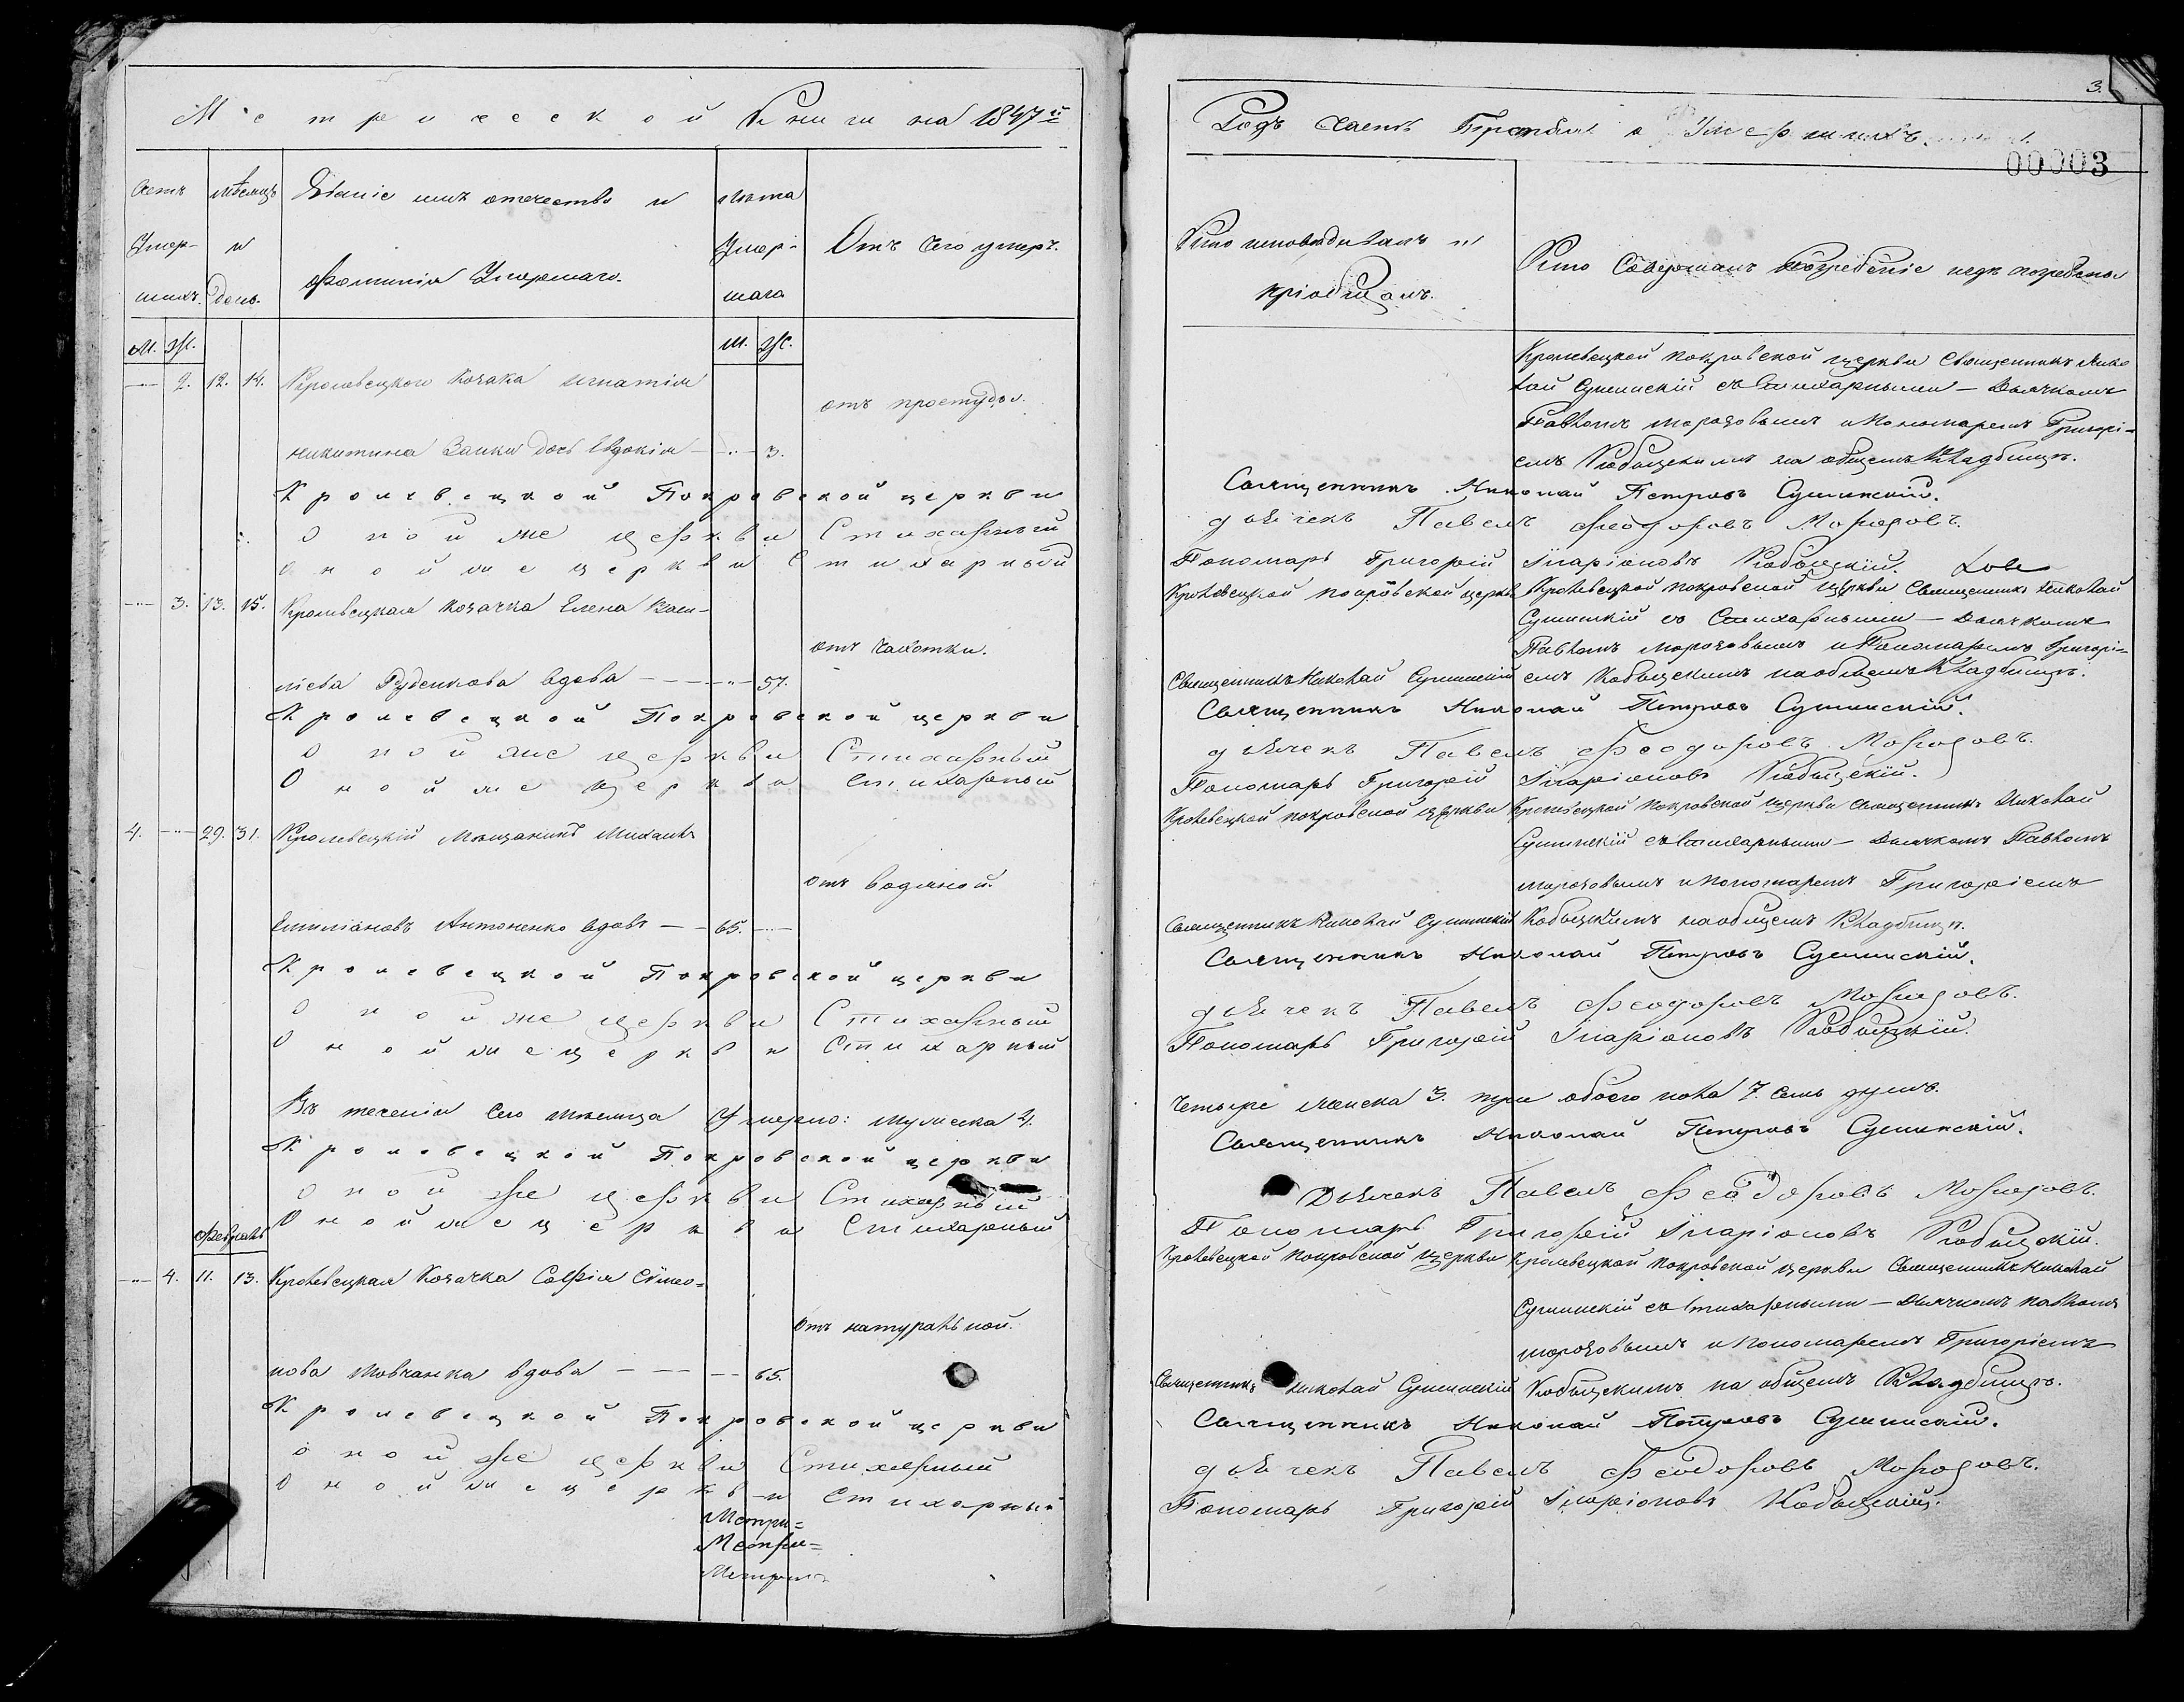 Метрической Книги на 1847й
Счетъ
Умер-
шихъ.
мѣсяцъ
и
день.
Званіе имя отечество и
Фамилія Умершаго.
лѣта
Умер-
шаго
Отъ Чего умеръ.
М. Ж.
М. Ж.
2. 12. 14. Кролевецкого козака Игнатія
отъ простуды.
никитина Заики дочь Евдокія — 3.
Кролевецкой Покровской церкви
Оной же церкви Стихарный
Оной же церкви Стихарный
3. 13. 15. Кролевецкая козачка Елена Васи-
отъ чахотки.
ліева Руденкова вдова — 57.
Кролевецкой Покровской церкви
Оной же церкви Стихарный
Оной же церкви Стихарный
4. 29. 31. Кролевецкій Мещанинъ Михаилъ
отъ водяной.
Емиліановъ Антоненко вдовъ — 65.
Кролевецкой Покровской церкви
Оной же церкви Стихарный
Оной же церкви Стихарный
Въ теченіи Сего мѣсяца Умерло: мужеска 4.
Кролевецкой Покровской церкви
Оной же церкви Стихарный
Оной же церкви Стихарный
Февраль
4. 11. 13. Кролевецкая Козачка Софія Сімео=
отъ натуральной.
нова Мовчанка вдова — 65.
Кролевецкой Покровской церкви
Оной же церкви Стихарный
Оной же церкви Стихарный
Метри=
Метри=
Метри=
3.
Годъ Часть Третія о Умершихъ.
00003
Кто исповѣдывалъ и
пріобщалъ.
Кто Совершалъ погребеніе и гдѣ погребены
Кролевецкой покровской церкви Священникъ Нико
лай Сушинскій съ Стихарными — Дьячкомъ
Павломъ Морозовымъ и Пономаремъ Григорі=
емъ Кобыщскимъ на общемъ Кладбищѣ.
Священникъ Николай Петровъ Сушинскій.
дьячекъ Павелъ Феодоровъ Морозовъ.
Пономарь Григорій Іларіоновъ Кобыщскій.
Кролевецкой покровской церкви Кролевецкой покровской церкви Священникъ Николай
Сушинскій съ Стихарными — Дьячкомъ
Павломъ Морозовымъ и Пономаремъ Григорі=
Священникъ Николай Сушинскій емъ Кобыщскимъ на общемъ Кладбищѣ.
Священникъ Николай Петровъ Сушинскій.
дьячекъ Павелъ Феодоровъ Морозовъ.
Пономарь Григорій Іларіоновъ Кобыщскій.
Кролевецкой покровской церкви Кролевецкой покровской церкви священникъ Николай
Сушинскій съ Стихарными — Дьячкомъ Павломъ
морозовымъ и пономаремъ Григоріемъ
Священникъ Николай Сушинскій Кобыщскимъ на общемъ Кладбищѣ.
Священникъ Николай Петровъ Сушинскій.
дьячекъ Павелъ Феодоровъ Морозовъ.
Пономарь Григорій Іларіоновъ Кобыщскій.
Четыре женска 3. три обоего пола 7. семь душъ.
Священникъ Николай Петровъ Сушинскій.
Дьячекъ Павелъ Феодоровъ Морозовъ.
Пономарь Григорій Іларіоновъ Кобыщскій.
Кролевецкой покровской церкви Кролевецкой покровской церкви Священникъ Николай
Сушинскій съ Стихарными — Дьячкомъ павломъ
морозовымъ и пономаремъ Григоріемъ
Священникъ Николай Сушинскій Кобыщскимъ на общемъ Кладбищѣ.
Священникъ Николай Петровъ Сушинскій.
дьячекъ Павелъ Феодоровъ Морозовъ.
Пономарь Григорій Іларіоновъ Кобыщскій.